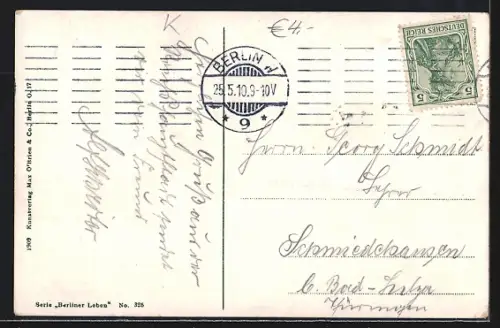 K
€4,-
BERLIN
25.5.10.9-10V
* 9 *
DEUTSCHES REICH
5 5
Gruß aus der
sendet
Herrn Georg Schmidt
Lehrer
Schmiedehausen
b. Bad-Sulza
Thüringen
1909 Kunstverlag Max O'Brien & Co., Berlin O. 17
Serie „Berliner Leben" No. 325